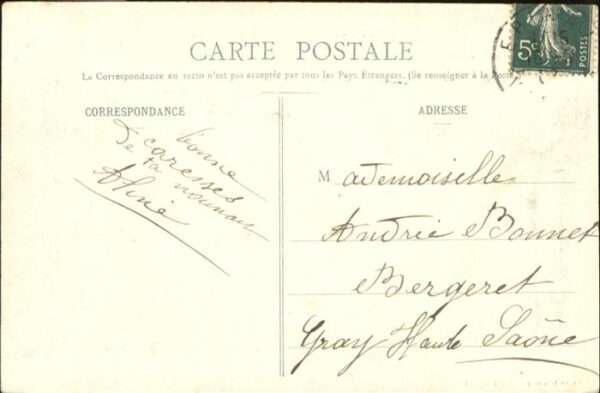 CARTE POSTALE
La Correspondance au recto n'est pas acceptée par tous les Pays Étrangers. (Se renseigner à la Poste
5c
POSTES
CORRESPONDANCE
ADRESSE
bonne
caresses
de ta nounou
Aline
Mademoiselle
Andrée Bonnet
Bergeret
Gray Haute Saône